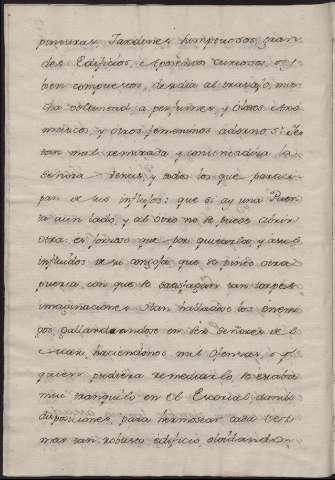 pinturas Jardines sumptuosos, gran
des Edificios, Aposentos curiosos, o
bien compuestos, desdia al trabajo, mu
cha voluntad a perfumes, y Olores Aro
maticos, y otros femeninos adornos: es
tan mal remirada y contenciosa la
Señora Venus, y todos los que partici
pan de sus influjos: que si ay una Puer
ta a un lado, y al otro no se puede abrir
otra es forzoso que por quitarla, y
influidos de su congoja que se pinte otra
puerta con que se satisfagan tan torpes
imaginaciones. Stan hallados los enemi
gos gallardeandose en ser señores de el
mar, haciendonos mil ofensas, y
quien pudiera remediarlo, se estaba
mui tranquilo en el Escorial dando
disposiciones para hermosear cada vez
mas tan robusto edificio, olvidando